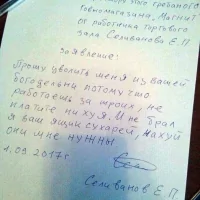 гребаного
говномагазина. Магнит
от работника торгового
зала Селиванова Е.П
Заявление:
Прошу уволить меня из вашей
богодельни потому что
работаешь за троих, не
платите ни хуя. И не брал
я ваш ящик сухарей, нахуй
они мне нужны
1.09.2017г.
Селиванов Е.П